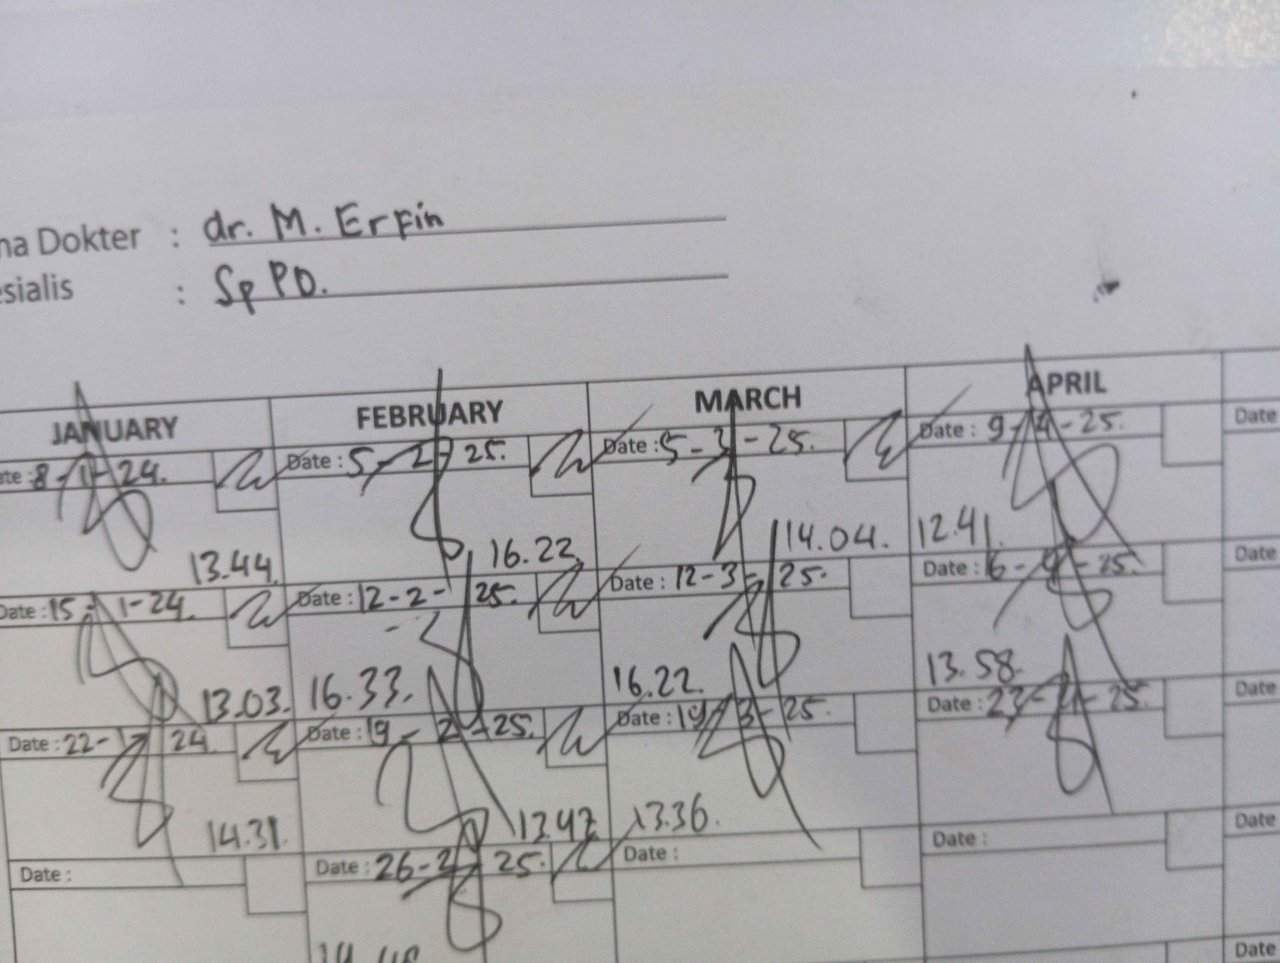 na Dokter : dr. M. Erfin
esialis : Sp PD.
JANUARY FEBRUARY MARCH APRIL
ate : 8-1-24. Date : 5-2-25. Date : 5-3-25. Date : 9-4-25. Date
13.44. 16.22 14.04. 12.41
Date : 15-1-24. Date : 12-2-25. Date : 12-3-25. Date : 16-4-25. Date
13.03. 16.33. 16.22. 13.58.
Date : 22-1-24 Date : 19-2-25. Date : 19-3-25. Date : 23-4-25. Date
14.31. 13.47 13.36.
Date : Date : 26-2-25. Date : Date : Date
Date